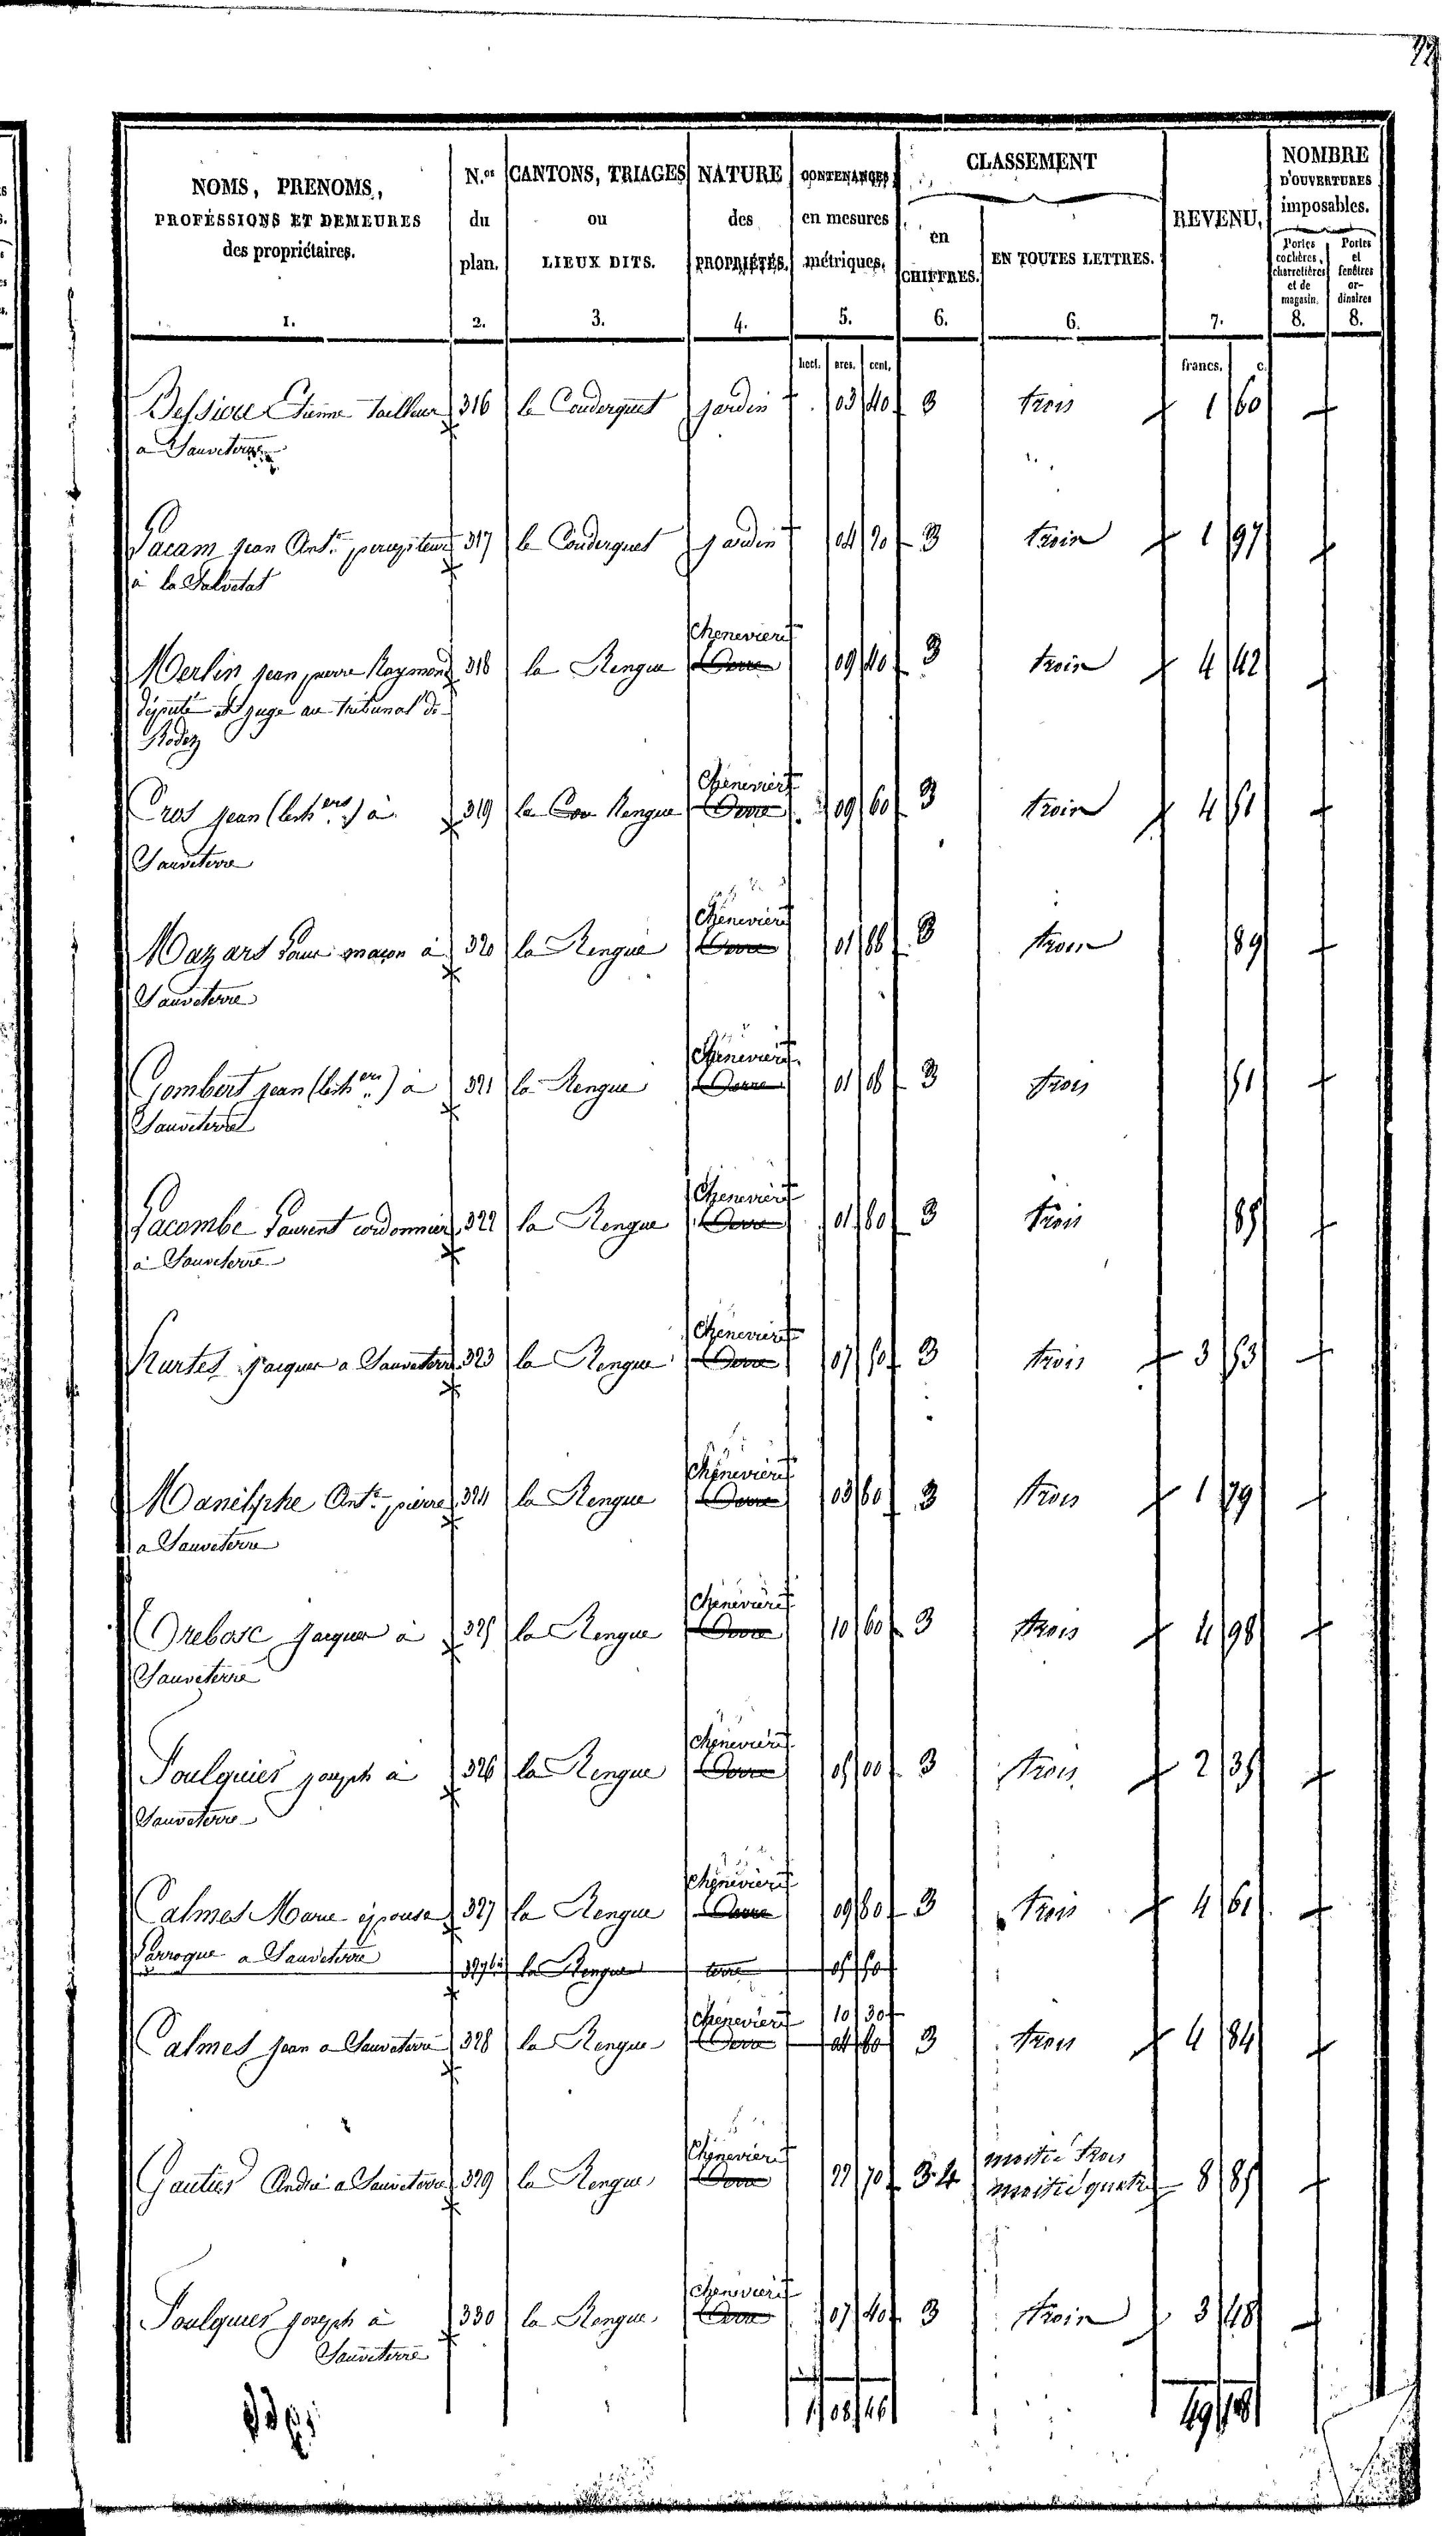 NOMS, PRENOMS, PROFESSIONS ET DEMEURES des propriétaires. N.os du plan. CANTONS, TRIAGES ou LIEUX DITS. NATURE des PROPRIÉTÉS. CONTENANCES en mesures métriques. CLASSEMENT en CHIFFRES. EN TOUTES LETTRES. REVENU. NOMBRE D'OUVERTURES imposables. Portes cochères, charretières et de magasin. Portes et fenêtres ordinaires
1. 2. 3. 4. 5. 6. 6. 7. 8. 8.
hect. ares. cent. francs. c.
Bessiere Etienne tailleur 316 le Couderguet jardin 03 40 3 trois 1 60
a Sauveterre
Lacam jean Ant.e percepteur 317 le Couderguet jardin 04 20 3 trois 1 97
à la Salvetat
Chenevière
Merlin jean pierre Raymond 318 la Rengue Terre 09 40 3 trois 4 42
député et juge au tribunal de
Rodez
Chenevière
Cros jean (les h.ers) à 319 la Cou Rengue Terre 09 60 3 trois 4 51
Sauveterre
Chenevière
Mazars maçon à 320 la Rengue Terre 01 88 3 trois 89
Sauveterre
Chenevière
Gombert jean (les h.ers) à 321 la Rengue Terre 01 08 3 trois 51
Sauveterre
Chenevière
Lacombe Laurent cordonnier 322 la Rengue Terre 01 80 3 trois 85
à Sauveterre
Chenevière
jacques a Sauveterre 323 la Rengue Terre 07 50 3 trois 3 53
Chenevière
Manelphe Ant.e pierre 324 la Rengue Terre 03 80 3 trois 1 79
a Sauveterre
Chenevière
Trebosc jacques à 325 la Rengue Terre 10 60 3 trois 4 98
Sauveterre
Chenevière
Foulquier joseph à 326 la Rengue Terre 05 00 3 trois 2 35
Sauveterre
Chenevière
Calmes Marie épouse 327 la Rengue Terre 09 80 3 trois 4 61
Larroque a Sauveterre 327 bis la Rengue terre 05 50
Chenevière 10 30
Calmes jean a Sauveterre 328 la Rengue Terre 04 80 3 trois 4 84
Chenevière moitié trois
Gautier André a Sauveterre 329 la Rengue Terre 22 70 3.4 moitié quatre 8 85
Chenevière
Foulquier joseph à 330 la Rengue Terre 07 40 3 trois 3 48
Sauveterre
1 08 46 49 18